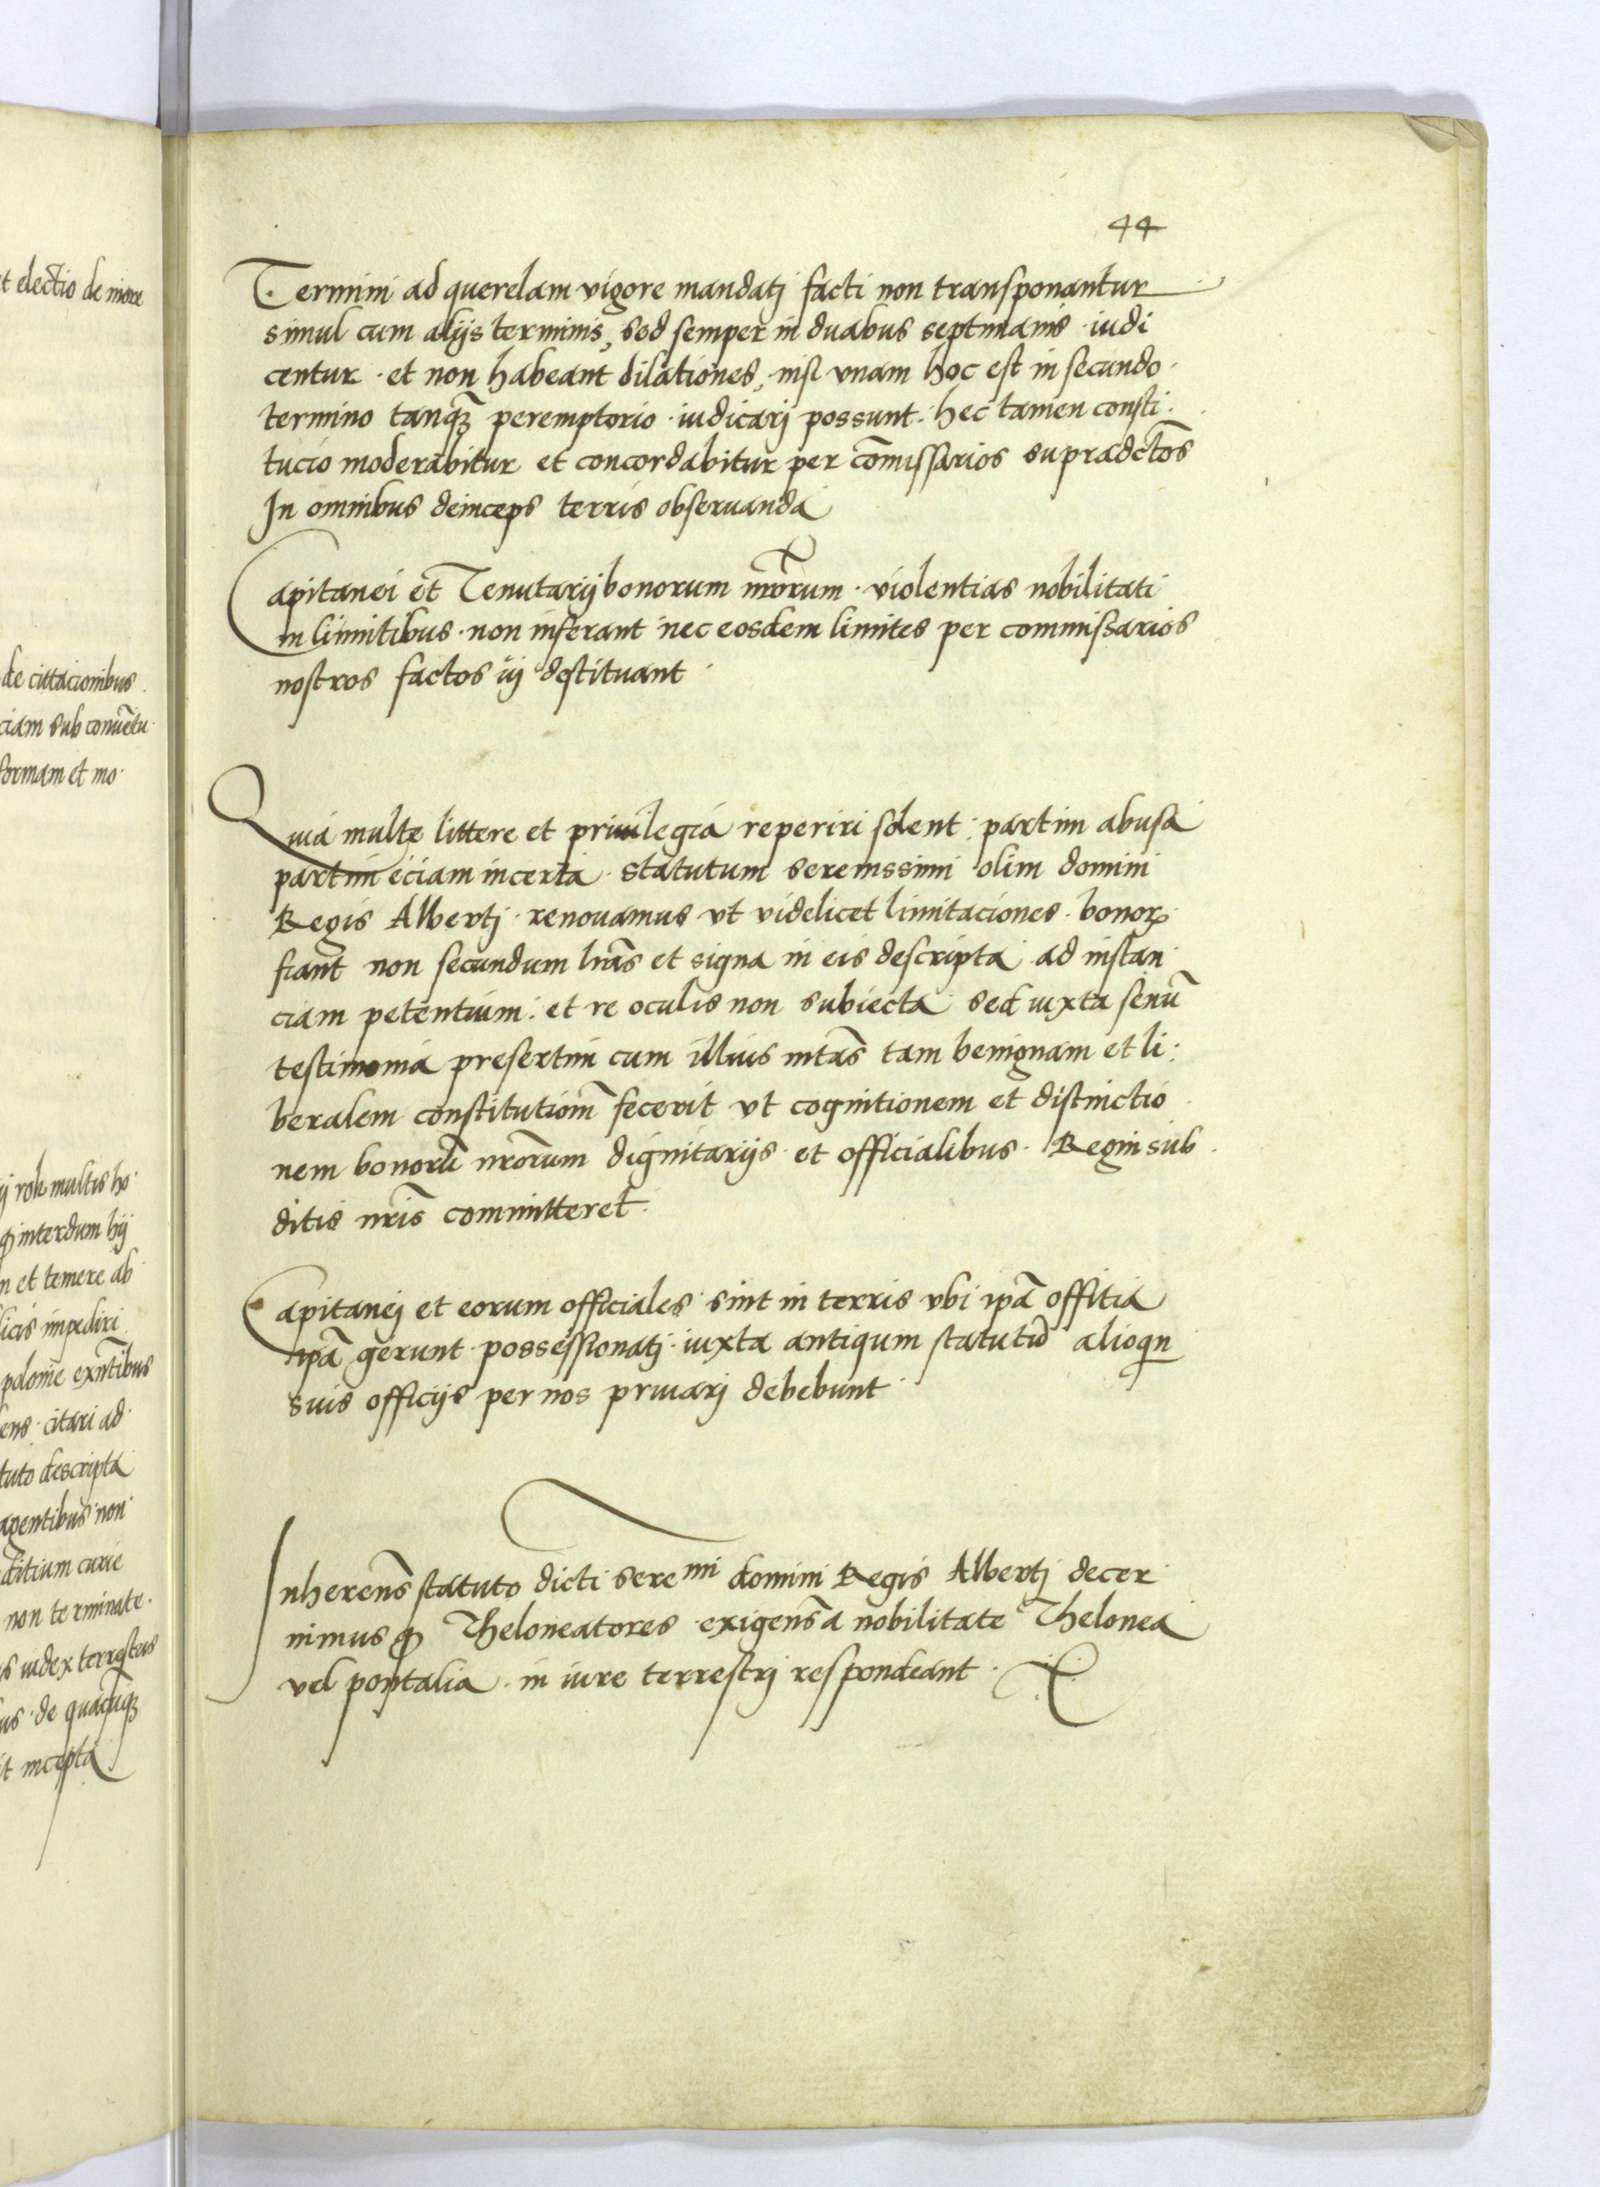 t electio de more
de cittacionibus
ciam sub conuētu
formam et mo·
ij rok multis ho·
ꝙ interdum hij
n et temere ab
licis impediri
polonie exn̄tibus
ens · citari ad·
tuto descripta
agentibus non
ditium curie
non terminate·
s iudex terrestris
us · de quacūqꝫ
it incepta
44
Termini ad querelam vigore mandatj facti non transponantur
simul cum alijs terminis, sed semper in duabus septimanis · iudi
centur · et non habeant dilationes, nisi vnam hoc est in secundo·
termino tanqꝫ peremptorio · iudicarj possunt · hec tamen consti·
tucio moderabitur et concordabitur per com̄issarios supradctōs
In omnibus deinceps terris obseruanda
Capitanei et Tenutarij bonorum nrōrum · violentias nobilitati
in limitibus · non inferant nec eosdem limites per commissarios
nostros factos ij destituant ·
Quia multe littere et priuilegia reperiri solent · partim abusa
partim eciam incerta · statutum serenissimi olim domini
Regis Albertj · renouamus vt videlicet limitaciones · bonoꝝ
fiant non secundum lrās et signa in eis descripta ad instan·
ciam petentium : et re oculis non subiecta sed iuxta senū
testimonia presertim cum illius mtās tam benignam et li:
beralem constitutiom̄ fecerit vt cognitionem et distinctio
nem bonorū nrōrum dignitarijs · et officialibus · Regni sub
ditis nrīs committeret ·
Capitanej et eorum officiales sint in terris vbi ipā offitia
ipā gerunt · possessionatj · iuxta antiqum statutū alioqn
suis officijs per nos priuarj debebunt ·
Inherens̄ statuto dicti sere mi domini Regis Albertj decer
nimus ꝙ Theloneatores · exigens̄ a nobilitate Thelonea
vel pontalia · in iure terrestrj respondeant ·